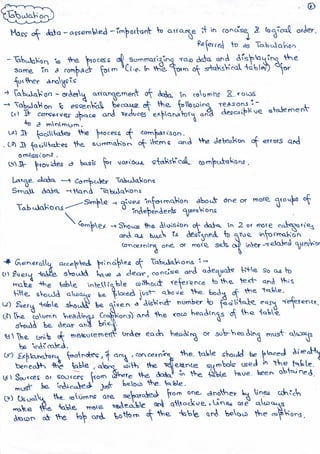 Tabulation
Mass of data - assembled - important to arrange it in concise & logical order.
Referred to as Tabulation
- Tabulation is the process of summarizing raw data and displaying the
same in a compact form (i.e. in the form of statistical tables) for
further analysis
→ Tabulation - orderly arrangement of data in columns & rows
→ Tabulation is essential because of the following reasons :-
(1) It conserves space and reduces explanatory and descriptive statement
to a minimum.
(2) It facilitates the process of comparison.
(3) It facilitates the summation of items and the detection of errors and
omissions.
It provides a basis for various statistical computations.
Large data → Computer Tabulations
Small data → Hand Tabulations
Tabulations
Simple → gives information about one or more groups of
independents questions
Complex → Shows the division of data in 2 or more categories
and as such is designed to give information
concerning one or more sets of inter-related question
* Generally accepted principles of Tabulations :-
(1) Every table should have a clear, concise and adequate title so as to
make the table intelligible without reference to the text and this
title should always be placed just above the body of the table.
Every table should be given a distinct number to facilitate easy reference.
The column headings (captions) and the row headings of the table
should be clear and brief.
The unit of measurement under each heading or sub-heading must always
be indicated.
Explanatory footnotes, if any, concerning the table should be placed directly
beneath the table, along with the reference symbols used in the table.
Sources or sources from where the data in the table have been obtained
must be indicated just below the table.
Usually the columns are separated from one another by lines which
make the table more readable and attractive. Lines are always
drawn at the top and bottom of the table and below the captions.